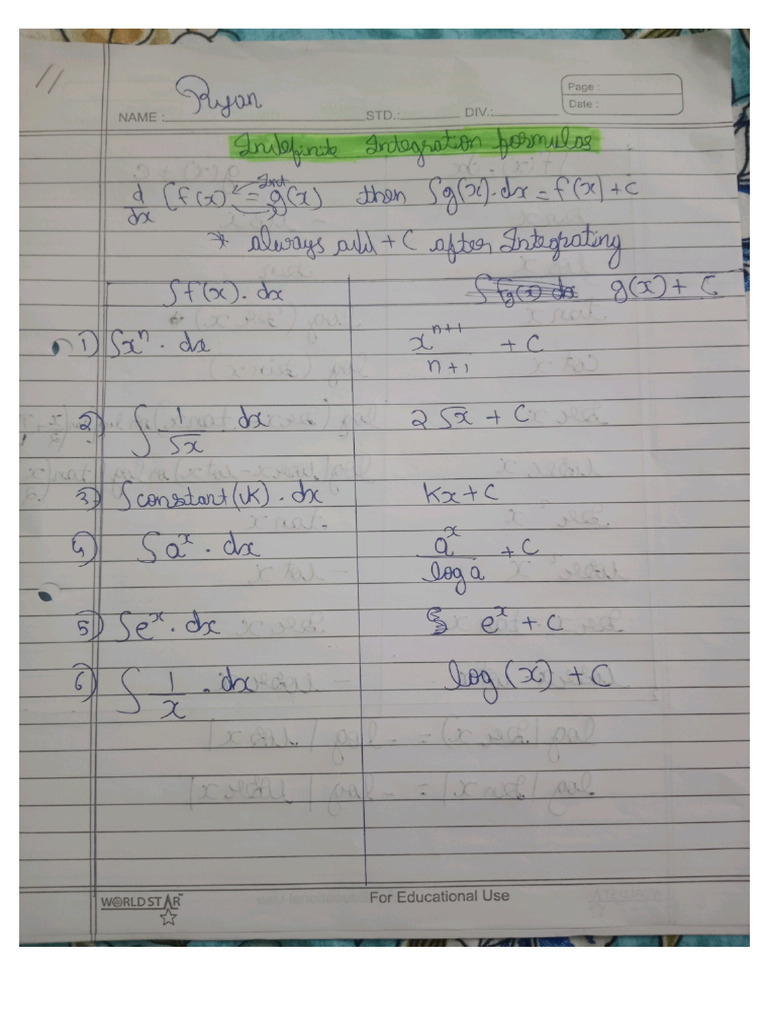 11
Ryan
Page :
Date :
NAME : STD.: DIV.:
Indefinite Integration formulas
d/dx [f(x) = g(x) then ∫g(x)·dx = f(x) + C
Int
* always add + C after Integrating
∫f(x)·dx g(x) + C
1) ∫xⁿ · dx xⁿ⁺¹/n+1 + C
2) ∫ 1/√x dx 2√x + C
3) ∫constant(k)·dx kx + C
4) ∫aˣ · dx aˣ/log a + C
5) ∫eˣ · dx eˣ + C
6) ∫ 1/x · dx log(x) + C
WORLD STAR For Educational Use